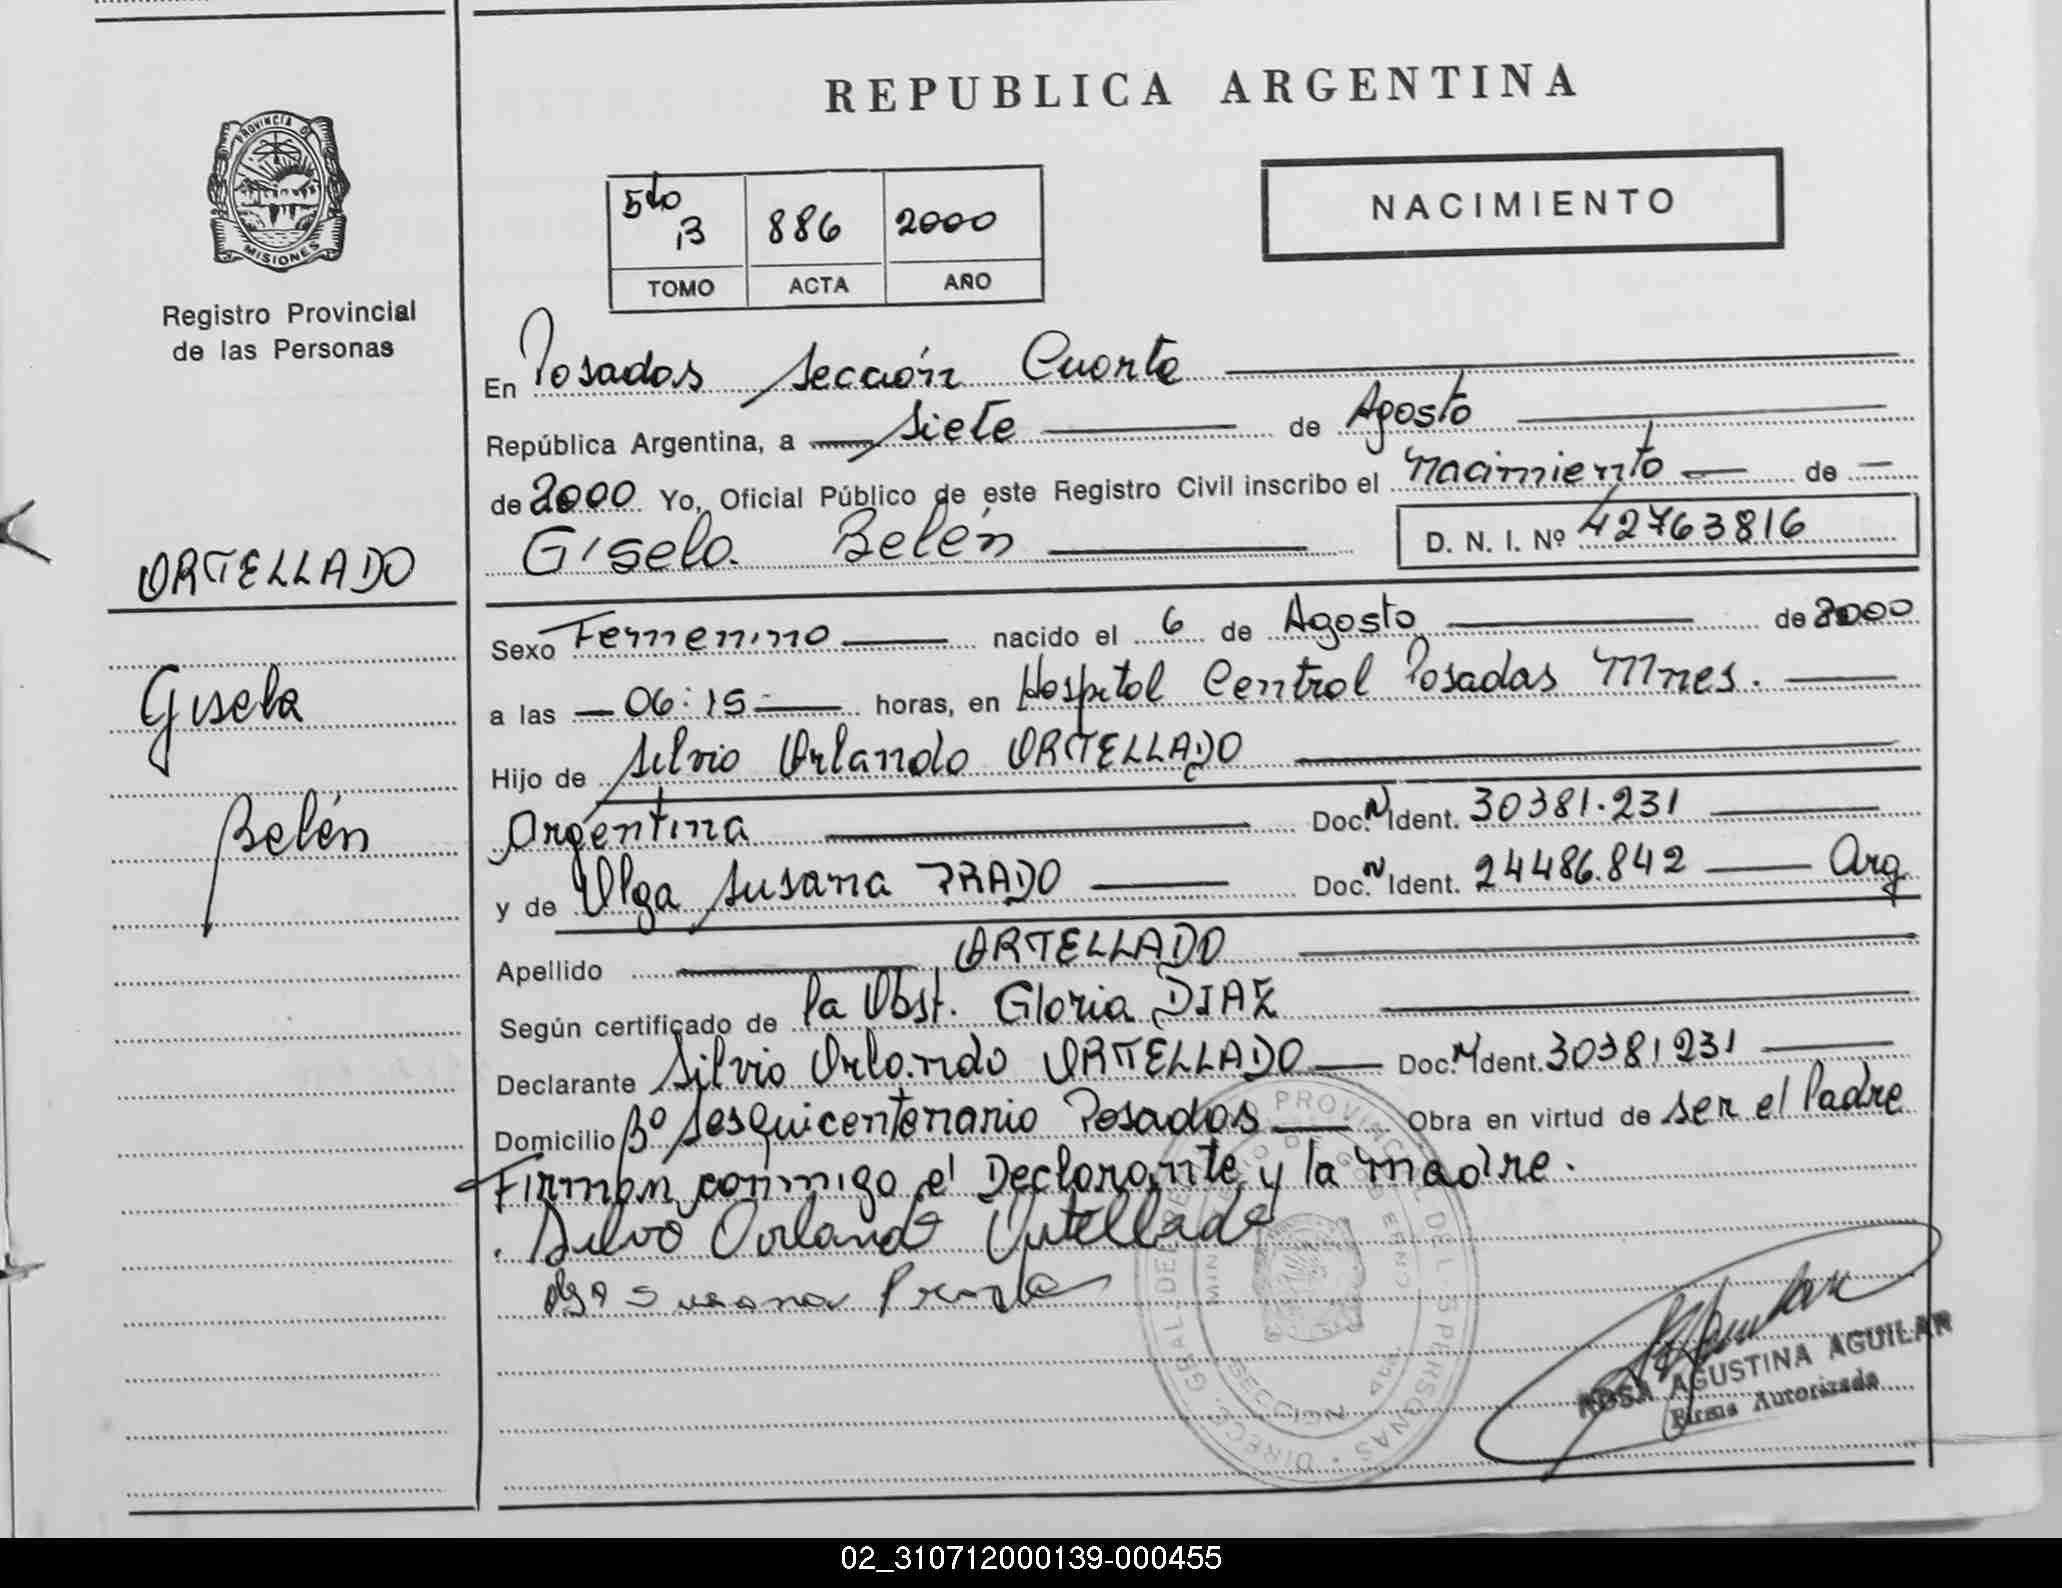 REPUBLICA ARGENTINA
PROVINCIA DE
MISIONES
Registro Provincial
de las Personas
5to B 886 2000
TOMO ACTA AÑO
NACIMIENTO
En Posadas Sección Cuarta
República Argentina, a Siete de Agosto
de 2000 Yo, Oficial Público de este Registro Civil inscribo el Nacimiento de
Gisela Belén D. N. I. Nº 42763816
ORTELLADO
Gisela
Belén
Sexo Femenino nacido el 6 de Agosto de 2000
a las 06:15 horas, en Hospital Central Posadas Mnes.
Hijo de Silvio Orlando ORTELLADO
Argentina Doc. N Ident. 30381.231
y de Olga Susana PRADO Doc. N Ident. 24486.842 Arg
Apellido ORTELLADO
Según certificado de la Obst. Gloria DIAZ
Declarante Silvio Orlando ORTELLADO Doc. N Ident. 30381231
Domicilio Bº Sesquicentenario Posadas Obra en virtud de ser el Padre
Firman conmigo el Declarante y la madre.
Silvio Orlando Ortellado
Olga Susana Prado
ROSA AGUSTINA AGUILAR
Firma Autorizada
02_310712000139-000455